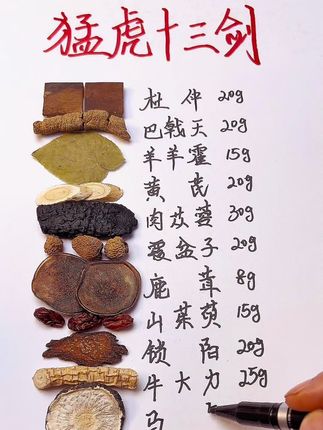 猛虎十三剑
杜仲 20g
巴戟天 20g
羊羊霍 15g
黄芪 20g
肉苁蓉 30g
覆盆子 20g
鹿茸 8g
山茱萸 15g
锁阳 20g
牛大力 25g
马